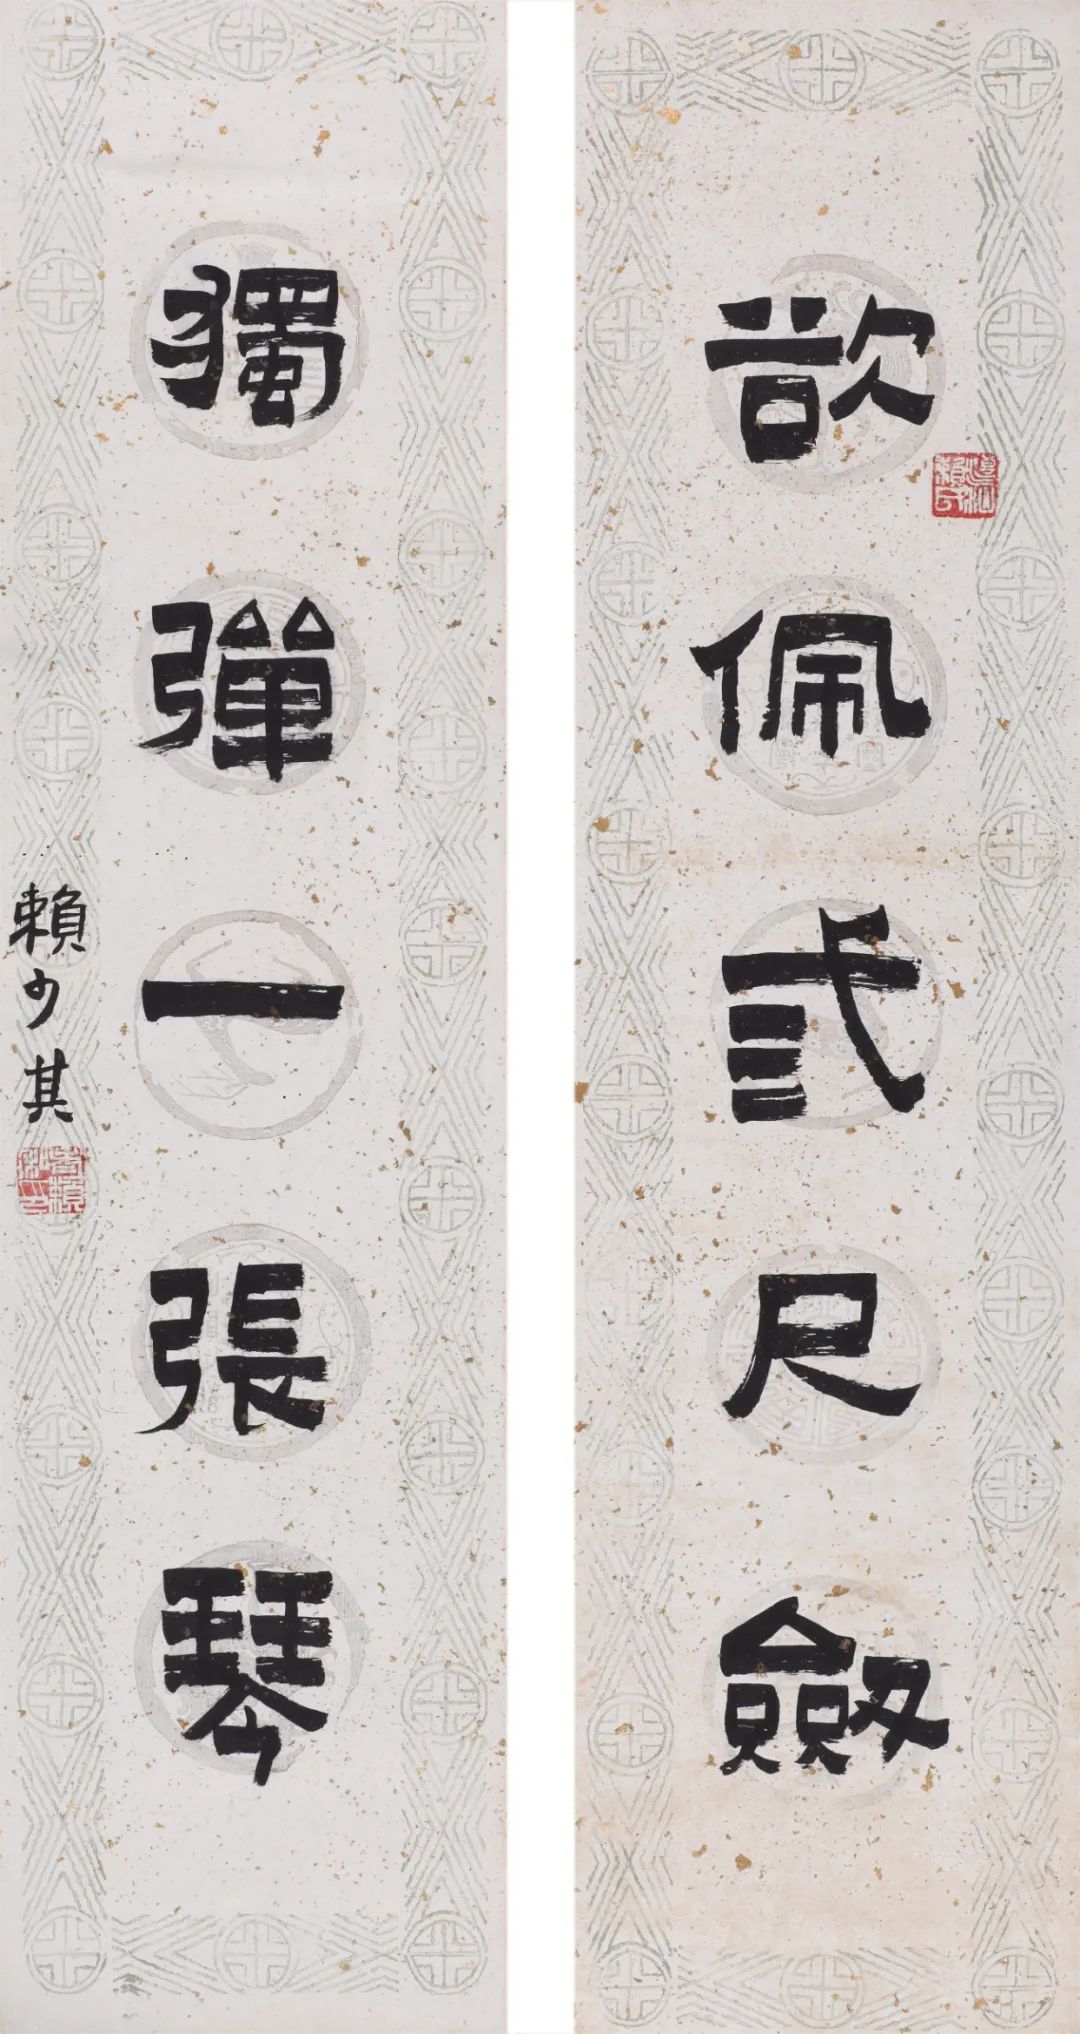 欲佩弎尺劒
獨彈一張琴
賴少其